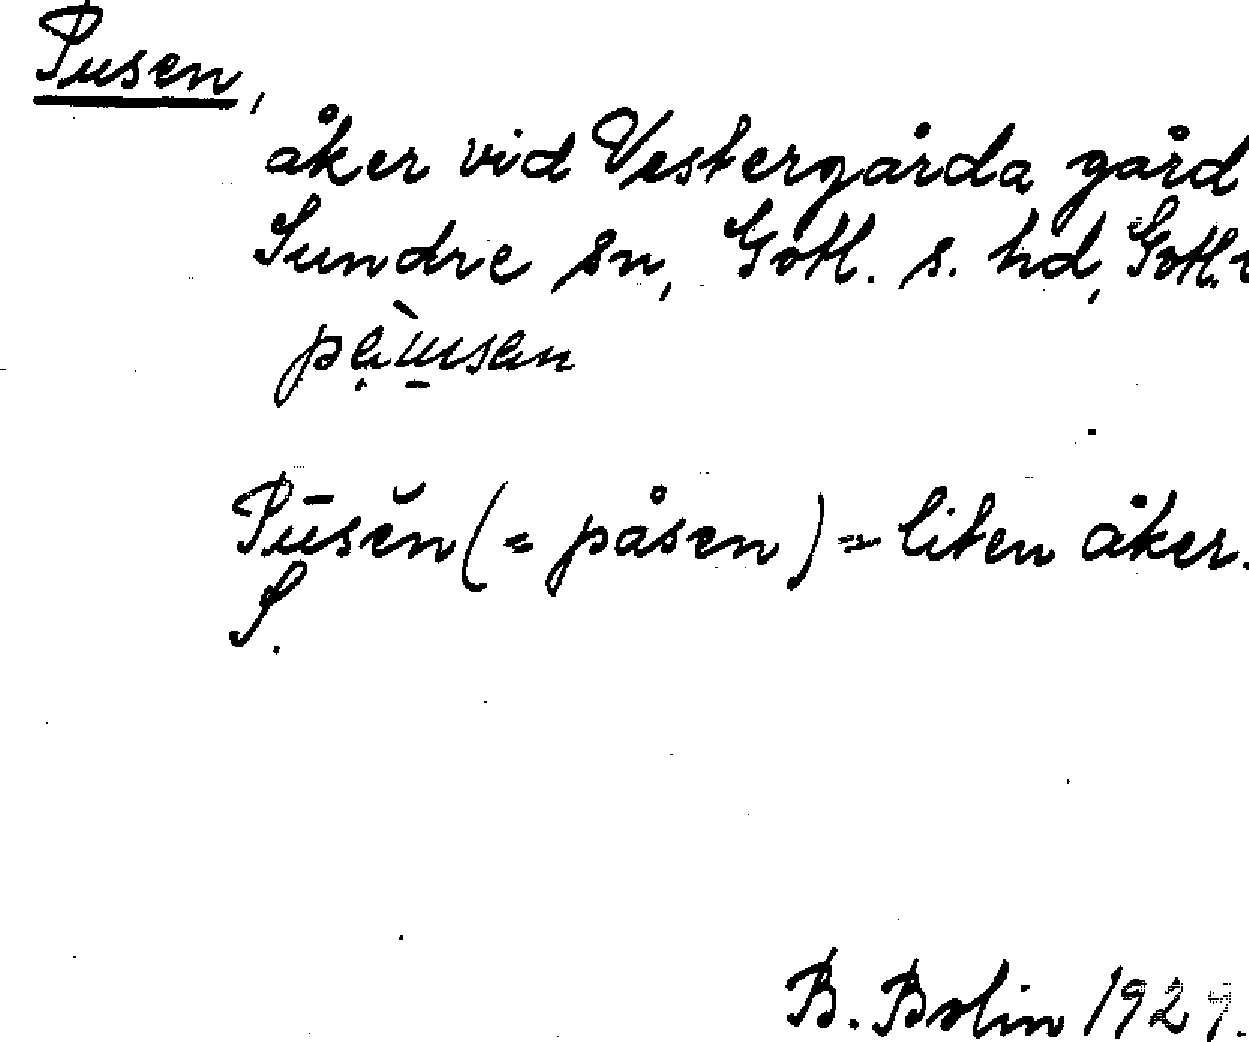 Pusen,
åker vid Vestergårda gård
Sundre sn, Gotl. s. hd, Gotl.
Pūsĕn (= påsen) = liten åker.
S.
B. Bolin 1929.